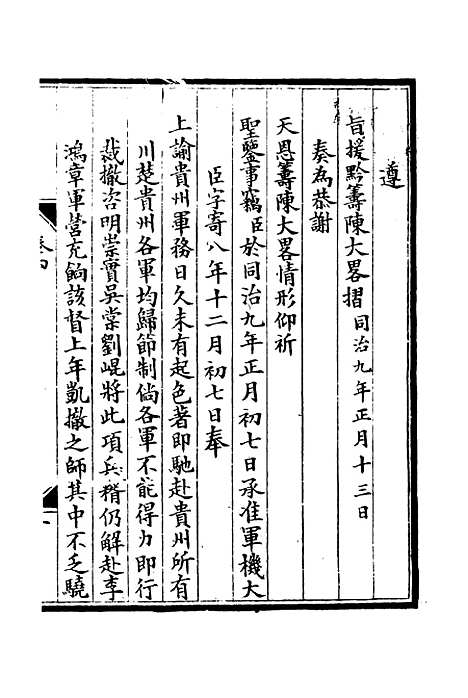 遵
旨援黔籌陳大畧摺同治九年正月十三日
奏為恭謝
天恩籌陳大畧情形仰祈
聖鑒事竊臣於同治九年正月初七日承准軍機大
臣字寄八年十二月初七日奉
上諭貴州軍務日久未有起色著即馳赴貴州所有
川楚貴州各軍均歸節制倘各軍不能得力即行
裁撤咨明崇實吳棠劉崐將此項兵糈仍解赴李
鴻章軍營充餉該督上年凱撤之師其中不乏驍